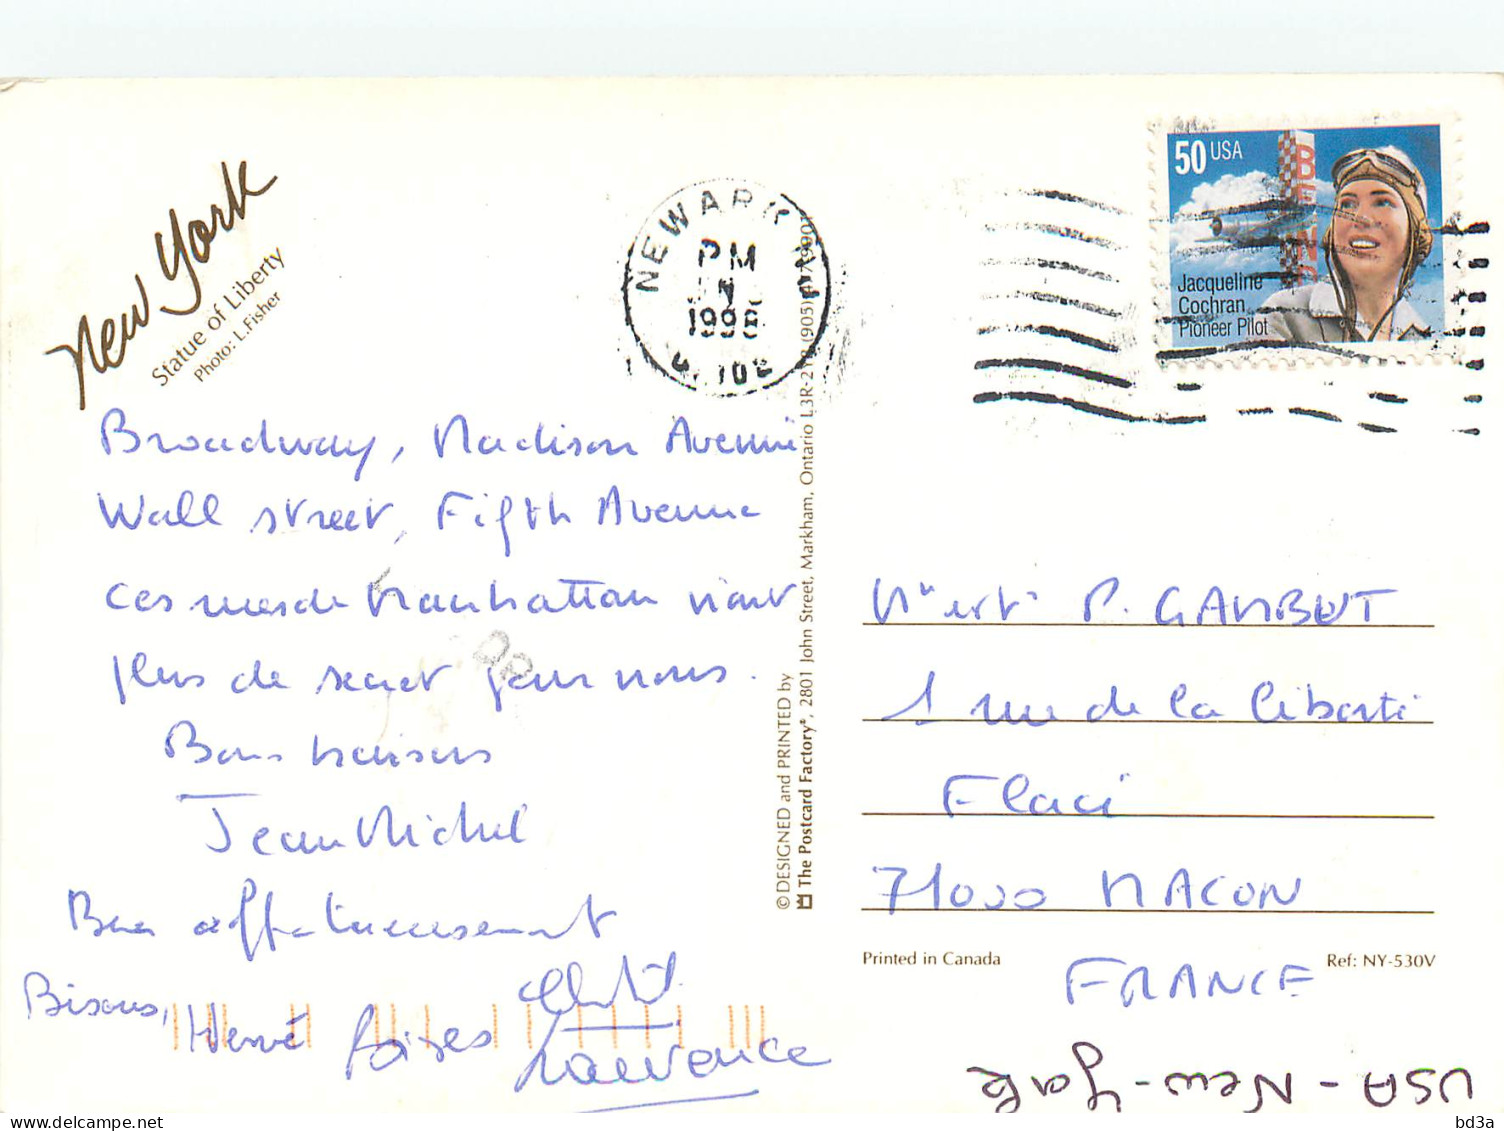 New York
Statue of Liberty
Photo: L.Fisher
NEWARK NJ
PM
1996
50 USA
Jacqueline
Cochran
Pioneer Pilot
Broadway, Madison Avenue
Wall street, Fifth Avenue
ces rues de Manhattan n'ont
plus de secret pour nous.
Bons baisers
Jean Michel
Bien affectueusement
Bisous, Hervé Bises
Laurence
© DESIGNED and PRINTED by
The Postcard Factory®, 2801 John Street, Markham, Ontario L3R-2Y8 (905) 477-9901
P. GAMBUT
1 rue de la liberté
Flacé
71000 MACON
FRANCE
Printed in Canada
Ref: NY-530V
USA - New-York
bd3a